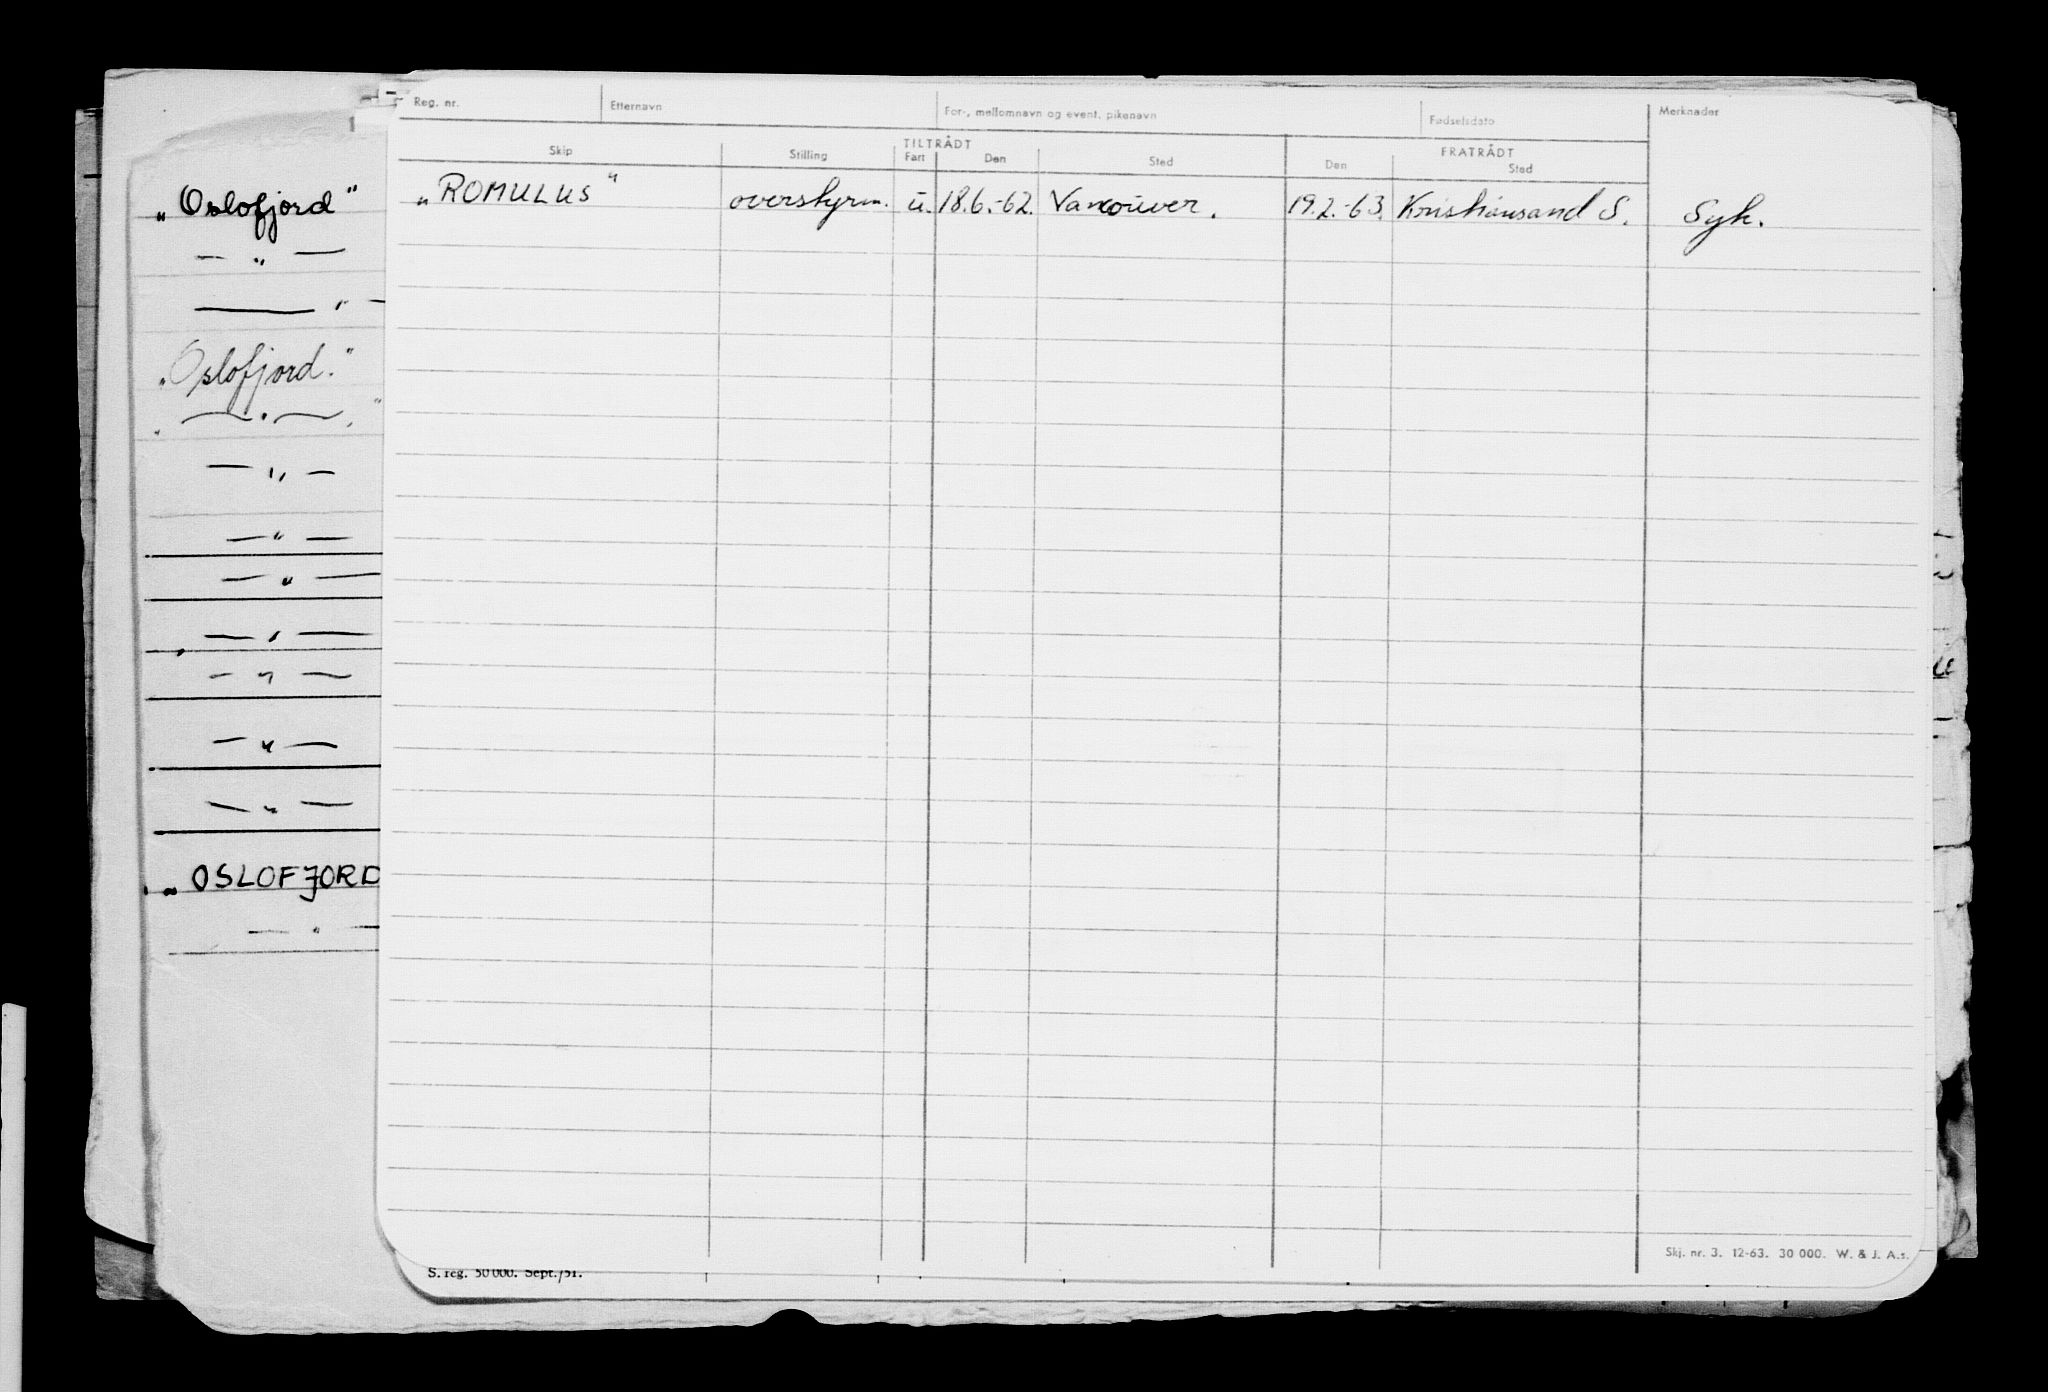 Reg. nr. Etternavn For-, mellomnavn og event. pikenavn Fødselsdato Merknader
TILTRÅDT FRATRÅDT
Skip Stilling Fart Den Sted Den Sted
„ROMULUS" overstyrm. u. 18.6.-62. Vancouver. 19.2.-63. Kristiansand S. Syk.
„Oslofjord"
— " —
— " —
„Oslofjord."
„ — " — "
— " —
— " —
— " —
— " —
— " —
— " —
— " —
„OSLOFJORD
— " —
Skj. nr. 3. 12-63. 30 000. W. & J. A.s.
S. reg. 50 000. Sept./51.